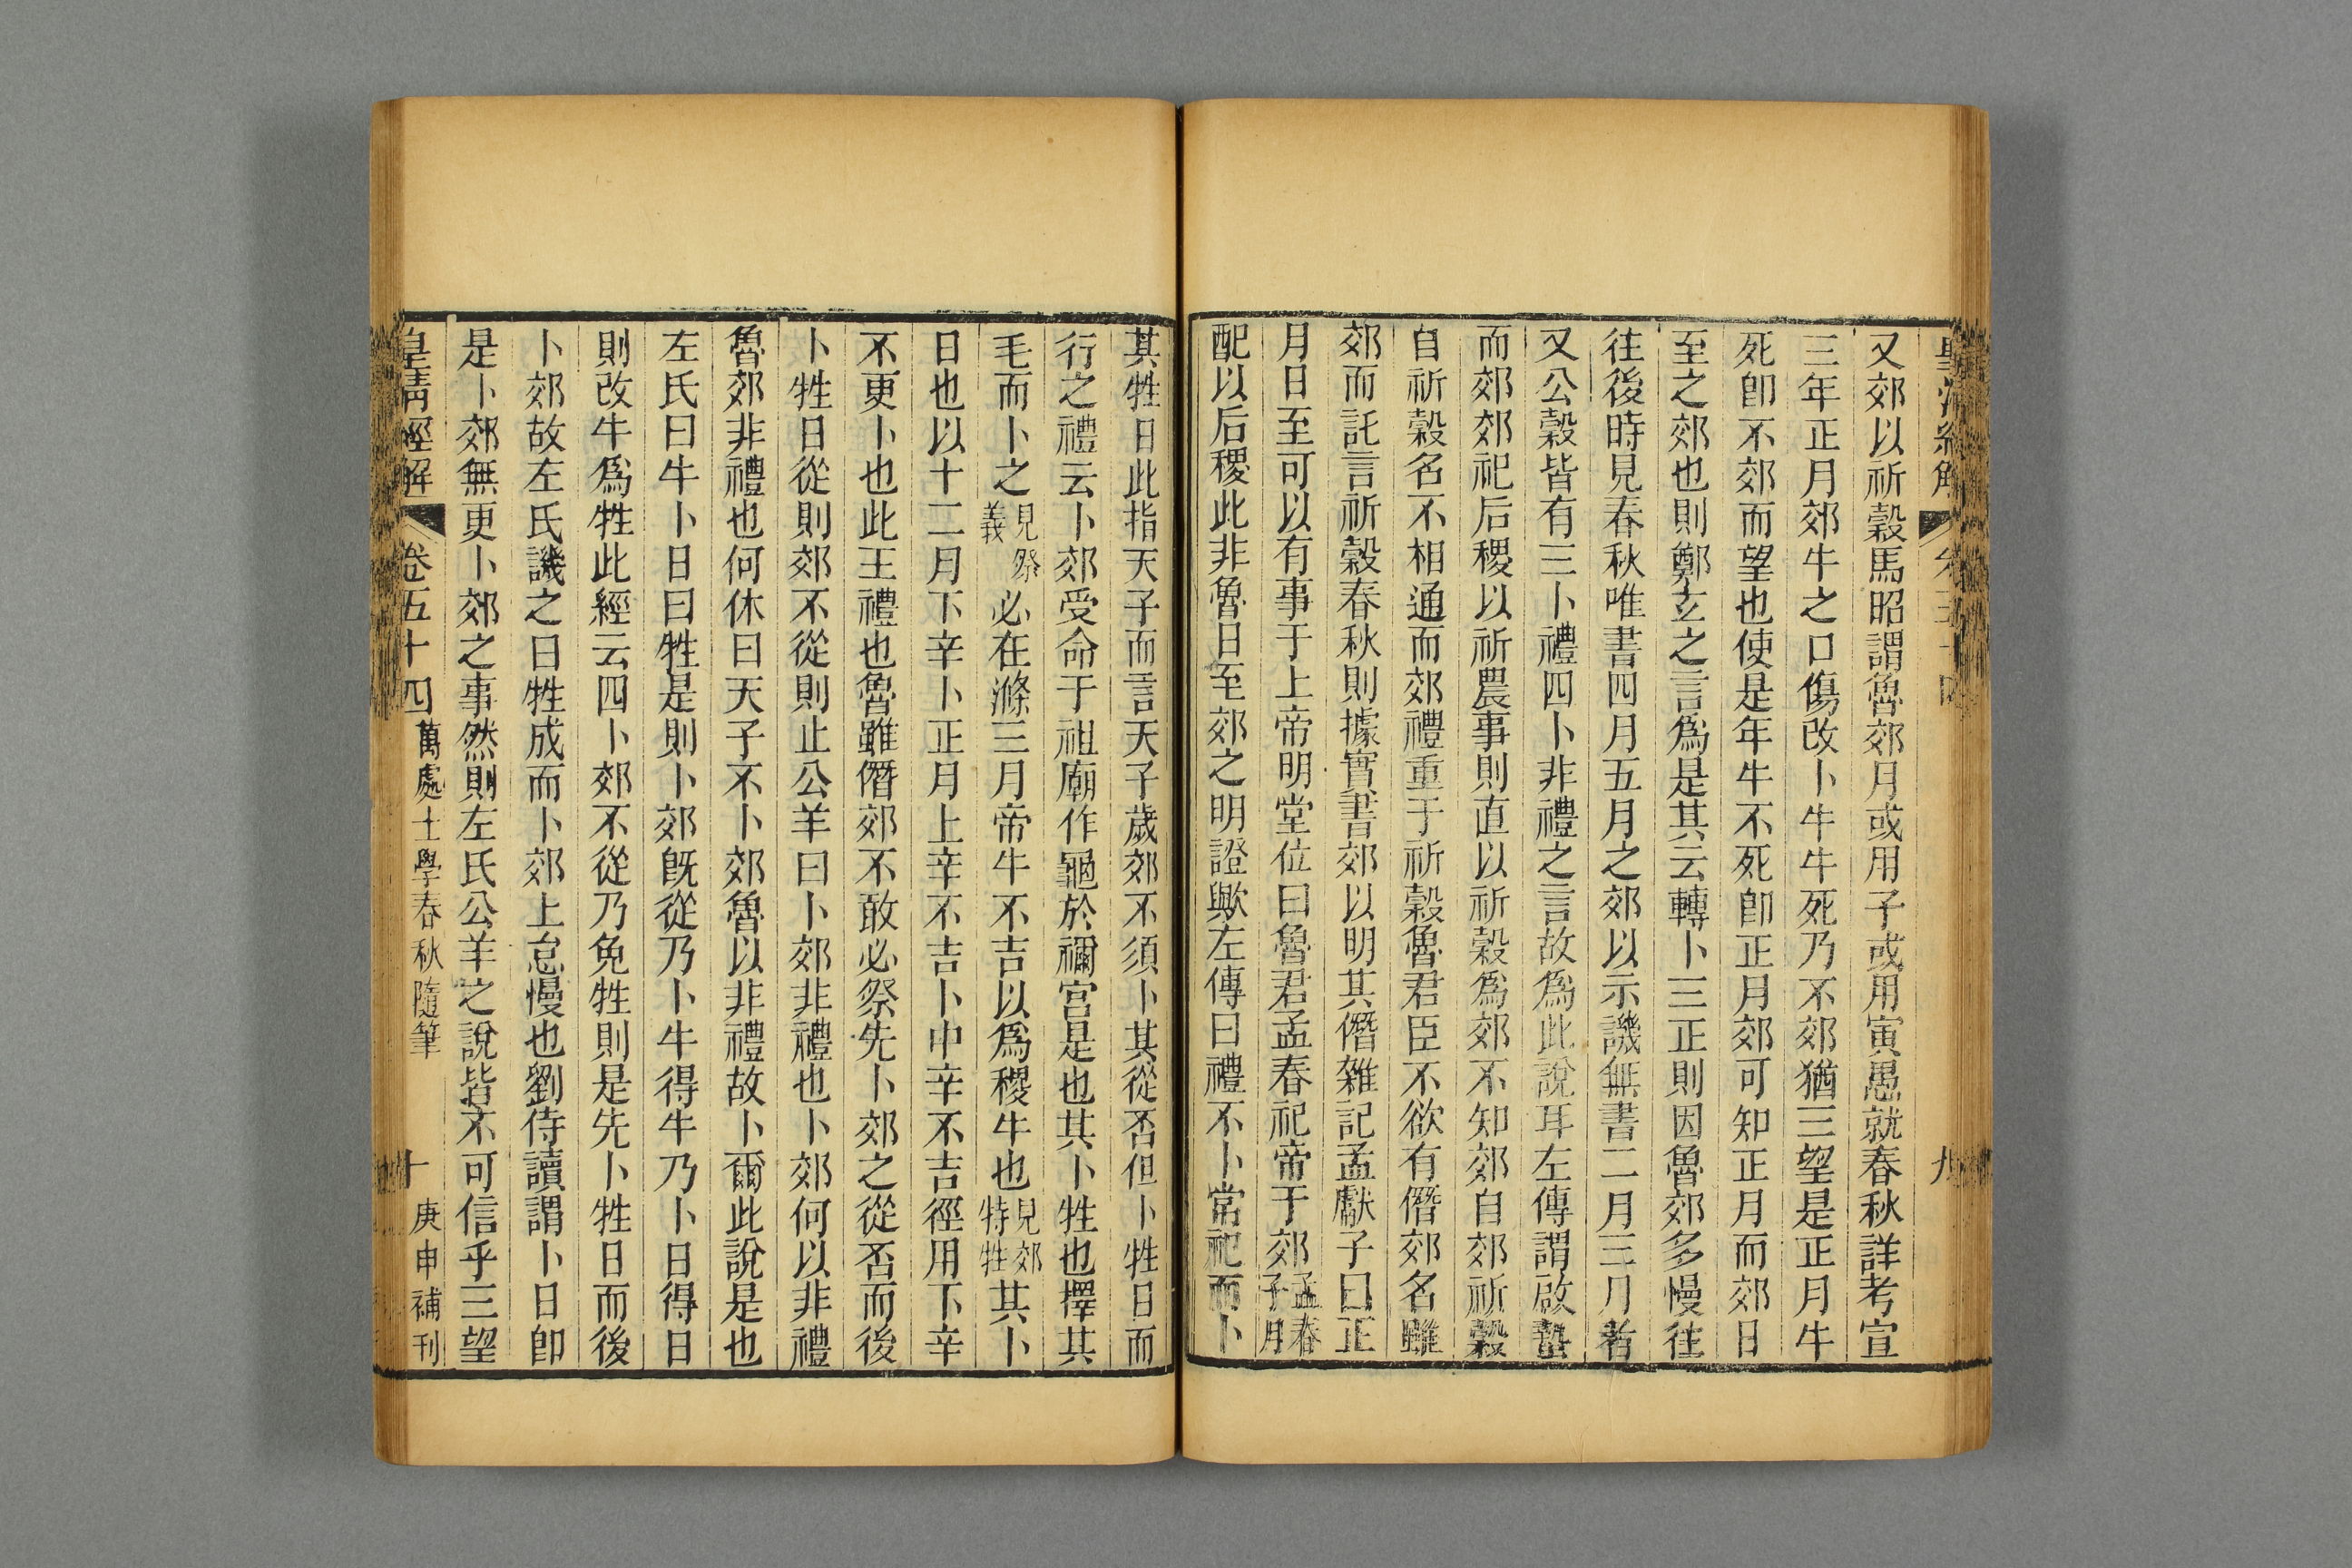 又郊以祈穀馬昭謂魯郊月或用子或用寅愚就春秋詳考宣
三年正月郊牛之口傷改卜牛牛死乃不郊猶三望是正月牛
死卽不郊而望也使是年牛不死卽正月郊可知正月而郊日
至之郊也則鄭玄之言爲是其云轉卜三正則因魯郊多慢往
往後時見春秋唯書四月五月之郊以示譏無書二月三月者
又公穀皆有三卜禮四卜非禮之言故爲此說耳左傳謂啟蟄
而郊郊祀后稷以祈農事則直以祈穀爲郊不知郊自郊祈穀
自祈穀名不相通而郊禮重于祈穀魯君臣不欲有僭郊名雖
郊而託言祈穀春秋則據實書郊以明其僭雜記孟獻子曰正
月日至可以有事于上帝明堂位曰魯君孟春祀帝于郊孟春子月
配以后稷此非魯日至郊之明證歟左傳曰禮不卜常祀而卜
其牲日此指天子而言天子歲郊不須卜其從否但卜牲日而
行之禮云卜郊受命于祖廟作龜於禰宮是也其卜牲也擇其
毛而卜之見祭義必在滌三月帝牛不吉以爲稷牛也見郊特牲其卜
日也以十二月下辛卜正月上辛不吉卜中辛不吉徑用下辛
不更卜也此王禮也魯雖僭郊不敢必祭先卜郊之從否而後
卜牲日從則郊不從則止公羊曰卜郊非禮也卜郊何以非禮
魯郊非禮也何休曰天子不卜郊魯以非禮故卜爾此說是也
左氏曰牛卜日曰牲是則卜郊旣從乃卜牛得牛乃卜日得日
則改牛爲牲此經云四卜郊不從乃免牲則是先卜牲日而後
卜郊故左氏譏之曰牲成而卜郊上怠慢也劉侍讀謂卜日卽
是卜郊無更卜郊之事然則左氏公羊之說皆不可信乎三望
皇淸經解 卷五十四 萬處士學春秋隨筆 十 庚申補刊